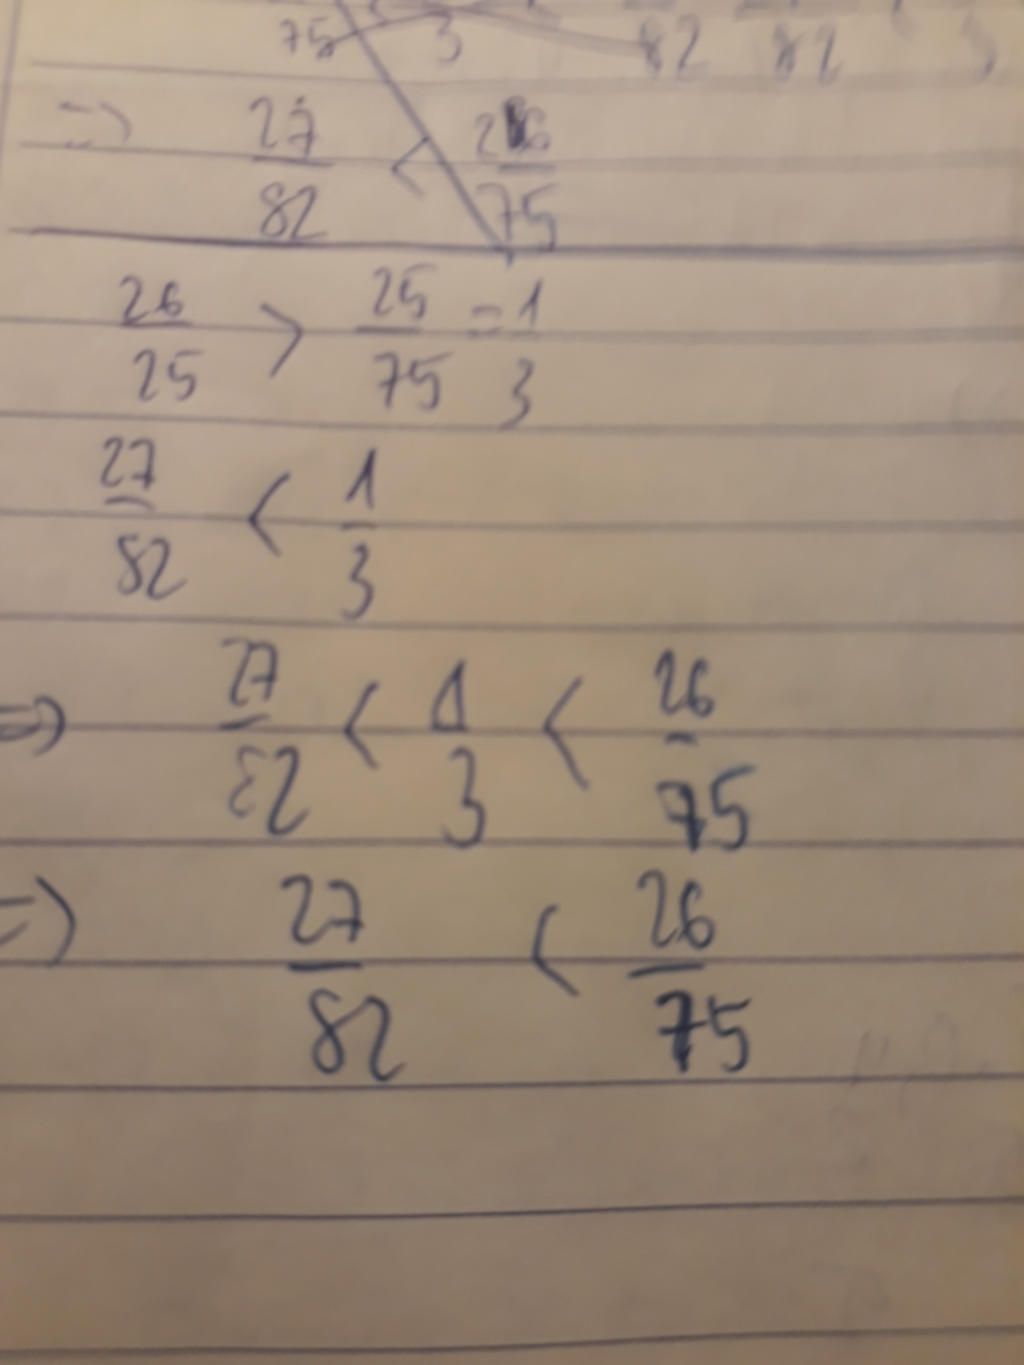 75 3 82 82 3
=> 27/82 < 26/75
26/25 > 25/75 = 1/3
27/82 < 1/3
=> 27/82 < 1/3 < 26/75
=> 27/82 < 26/75